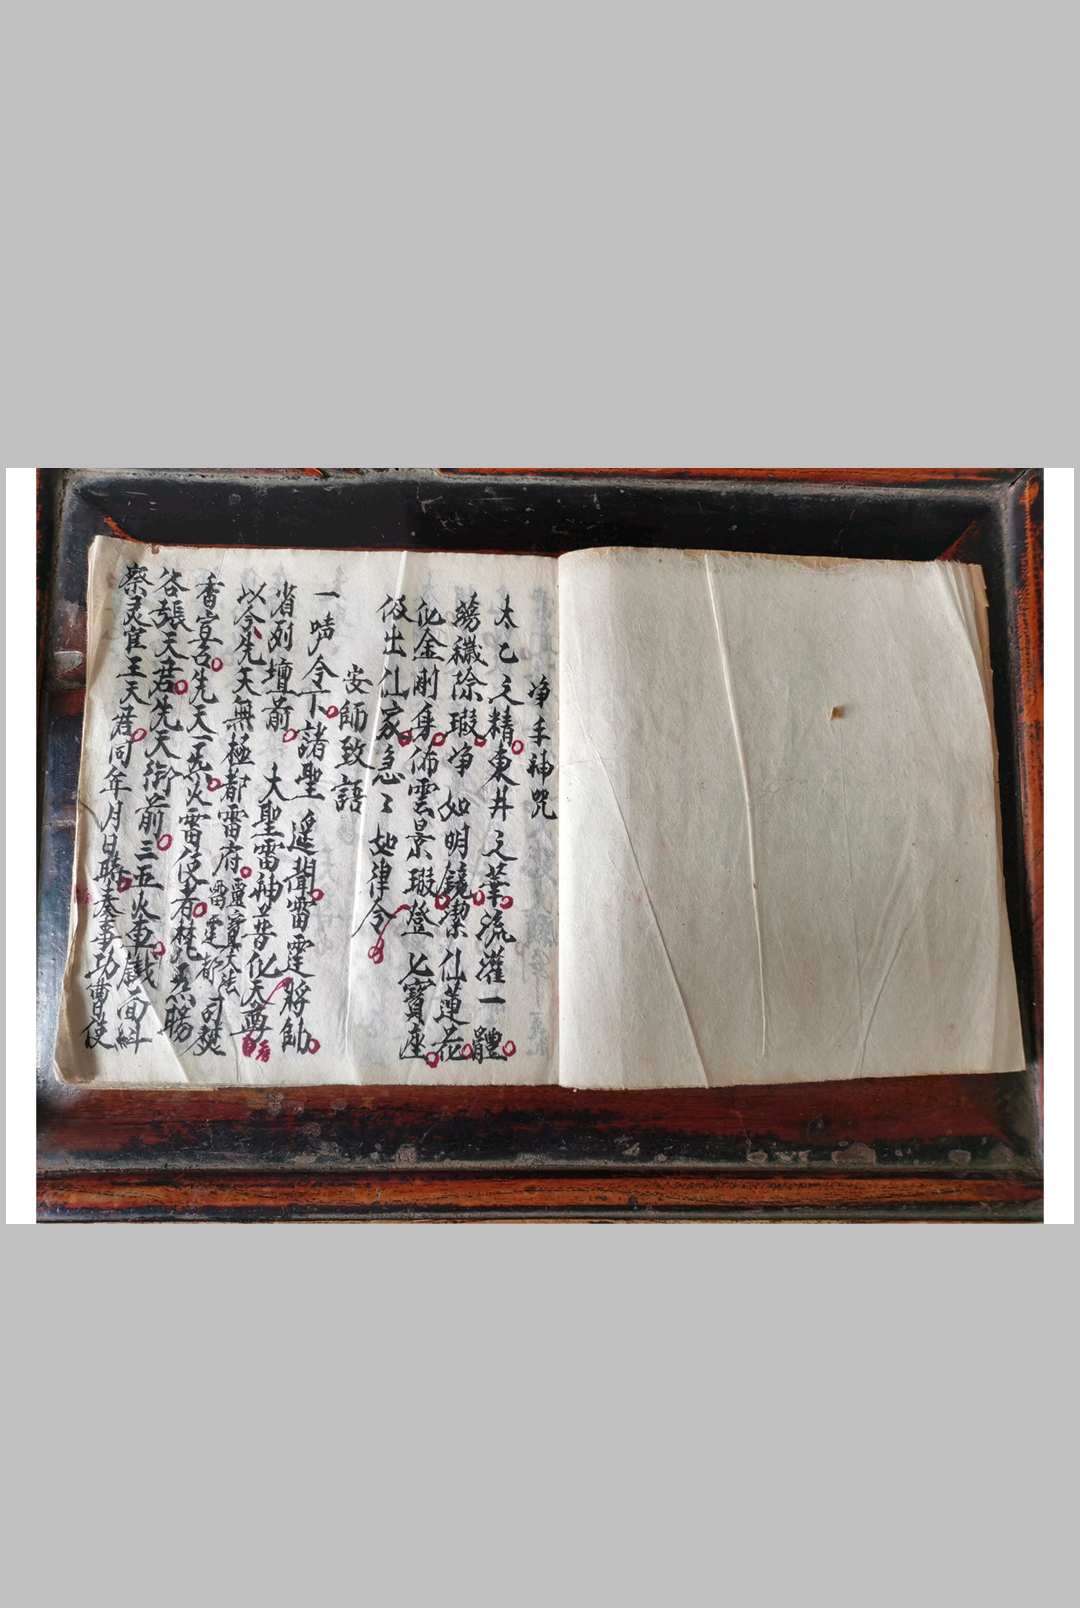 净手神咒
太乙之精東井之華流灌一體
穢除瑕净如明鏡潔仙蓮花
化金剛身佈雲景瑕登七寶座
伎出仙家急〻如律令
安師致語
一啨令下諸聖遥聞雷霆將帥
省列壇前大聖雷神普化天尊
以今先天無極都雷府靈寶大法司
雷霆都
香宣召先天一炁火雷使者
咎張天君先天衙前三五火車
察灵官王天君同年月日時奏事功曹使